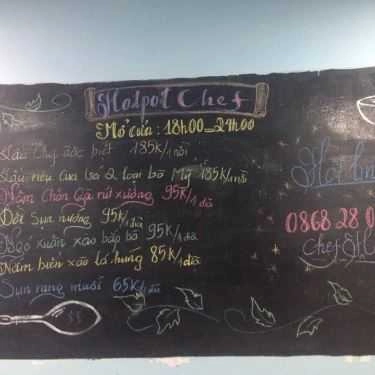 Hotpot Chef
Mở cửa : 18h00 - 24h00
Lẩu Chef đặc biệt 185k/1 nồi
Lẩu riêu cua ba & loại bò Mỹ 185k/1 nồi
Nầm Chân Gà rút xương 95k/1 đĩa
Dẻ Sụn nướng 95k/1 đĩa
xuân xào bắp bò 95k/1 đĩa
Nấm biển xào lá hung 85k/1 đĩa
Sụn rang muối 65k/1 đĩa
0868 28 0
Chef